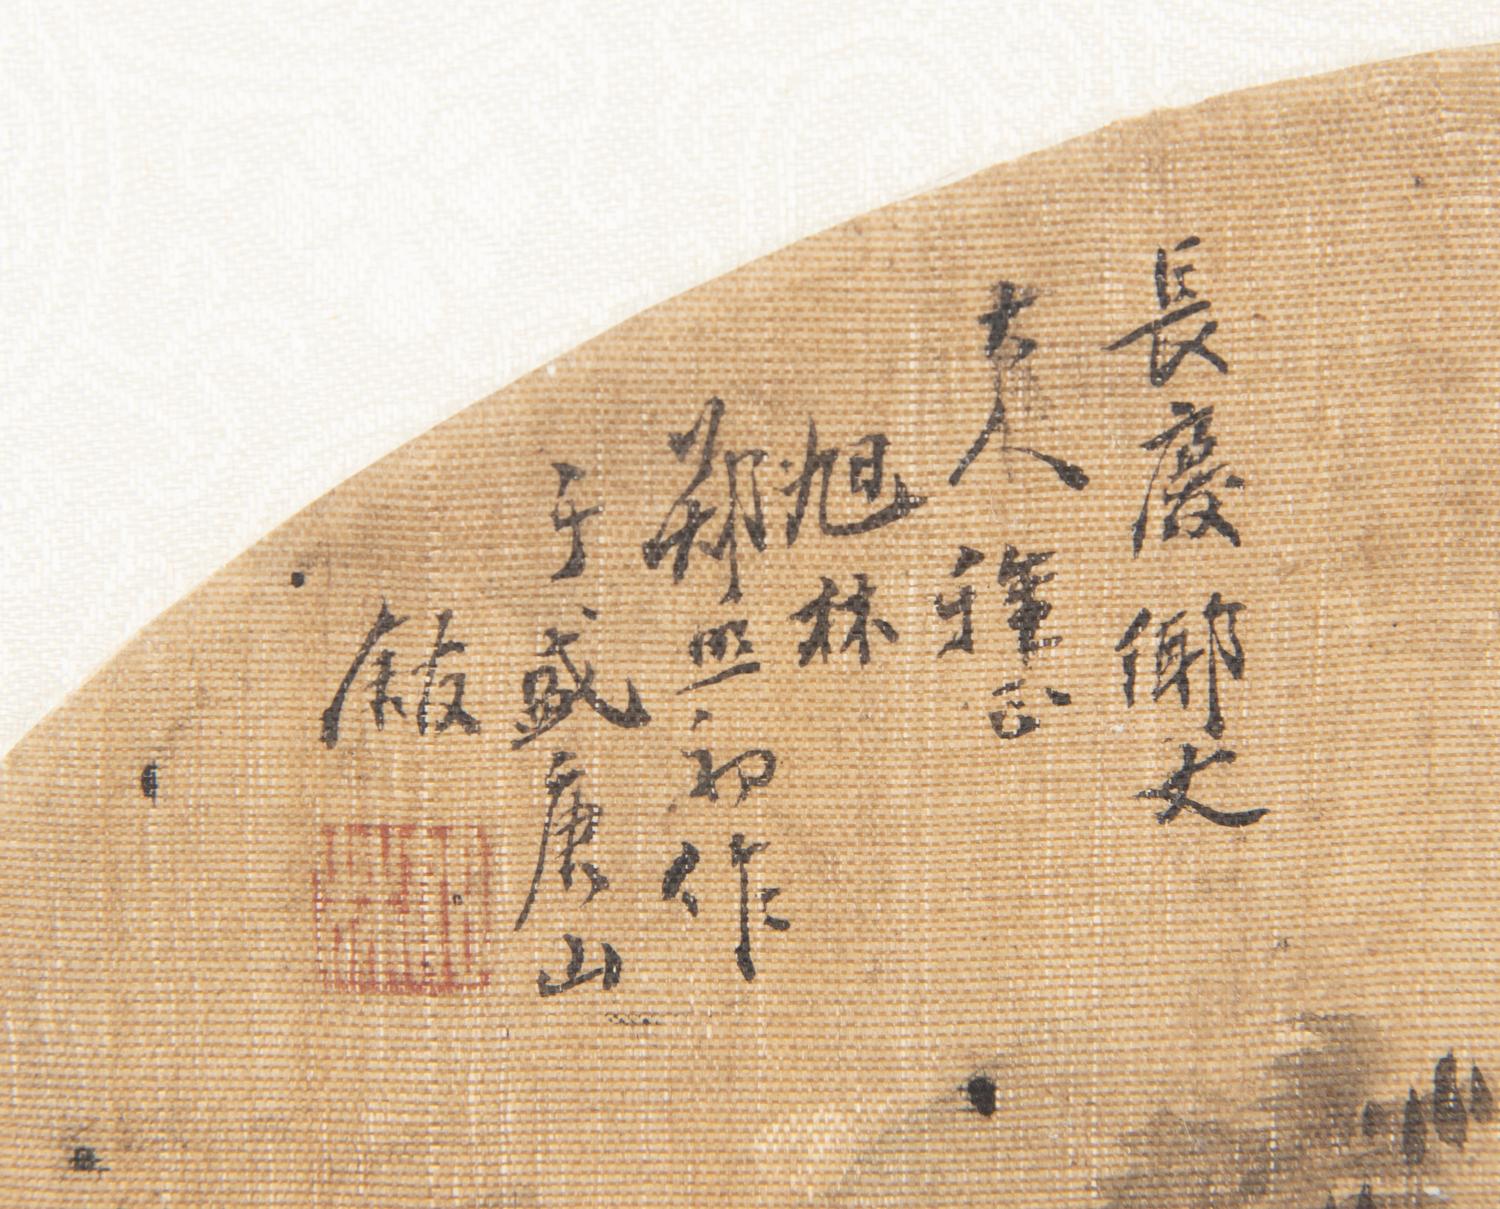 長慶鄉丈
大人雅正
旭林
鄭照初作
于盛唐山
館